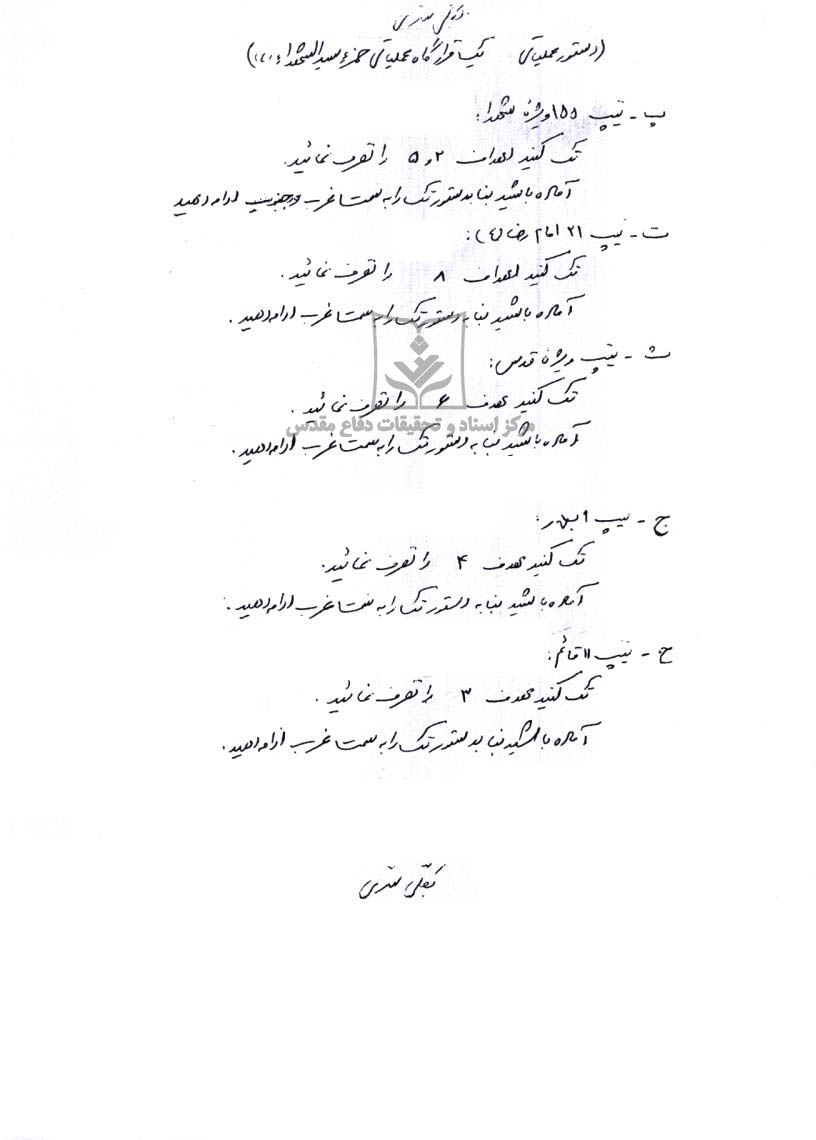 بکلی سری
(دستور عملیاتی تک قرارگاه عملیاتی حمزه سیدالشهداء ۱۲۰۱)
پ - تیپ ۱۵۵ ویژه شهدا:
تک کنید اهداف ۲ و ۵ را تصرف نمائید.
آماده باشید بنا بدستور تک را به سمت غرب ادامه دهید
ت - تیپ ۲۱ امام رضا (ع):
تک کنید اهداف ۸ را تصرف نمائید.
آماده باشید بنا به دستور تک را به سمت غرب ادامه دهید.
ث - تیپ ویژه قدس:
تک کنید هدف ۶ را تصرف نمائید.
مرکز اسناد و تحقیقات دفاع مقدس
آماده باشید بنا به دستور تک را به سمت غرب ادامه دهید.
ج - تیپ ۹ بدر:
تک کنید هدف ۴ را تصرف نمائید.
آماده باشید بنا به دستور تک را به سمت غرب ادامه دهید.
ح - تیپ ۱۱ قائم:
تک کنید هدف ۳ را تصرف نمائید.
آماده باشید بنا بدستور تک را به سمت غرب ادامه دهید.
بکلی سری